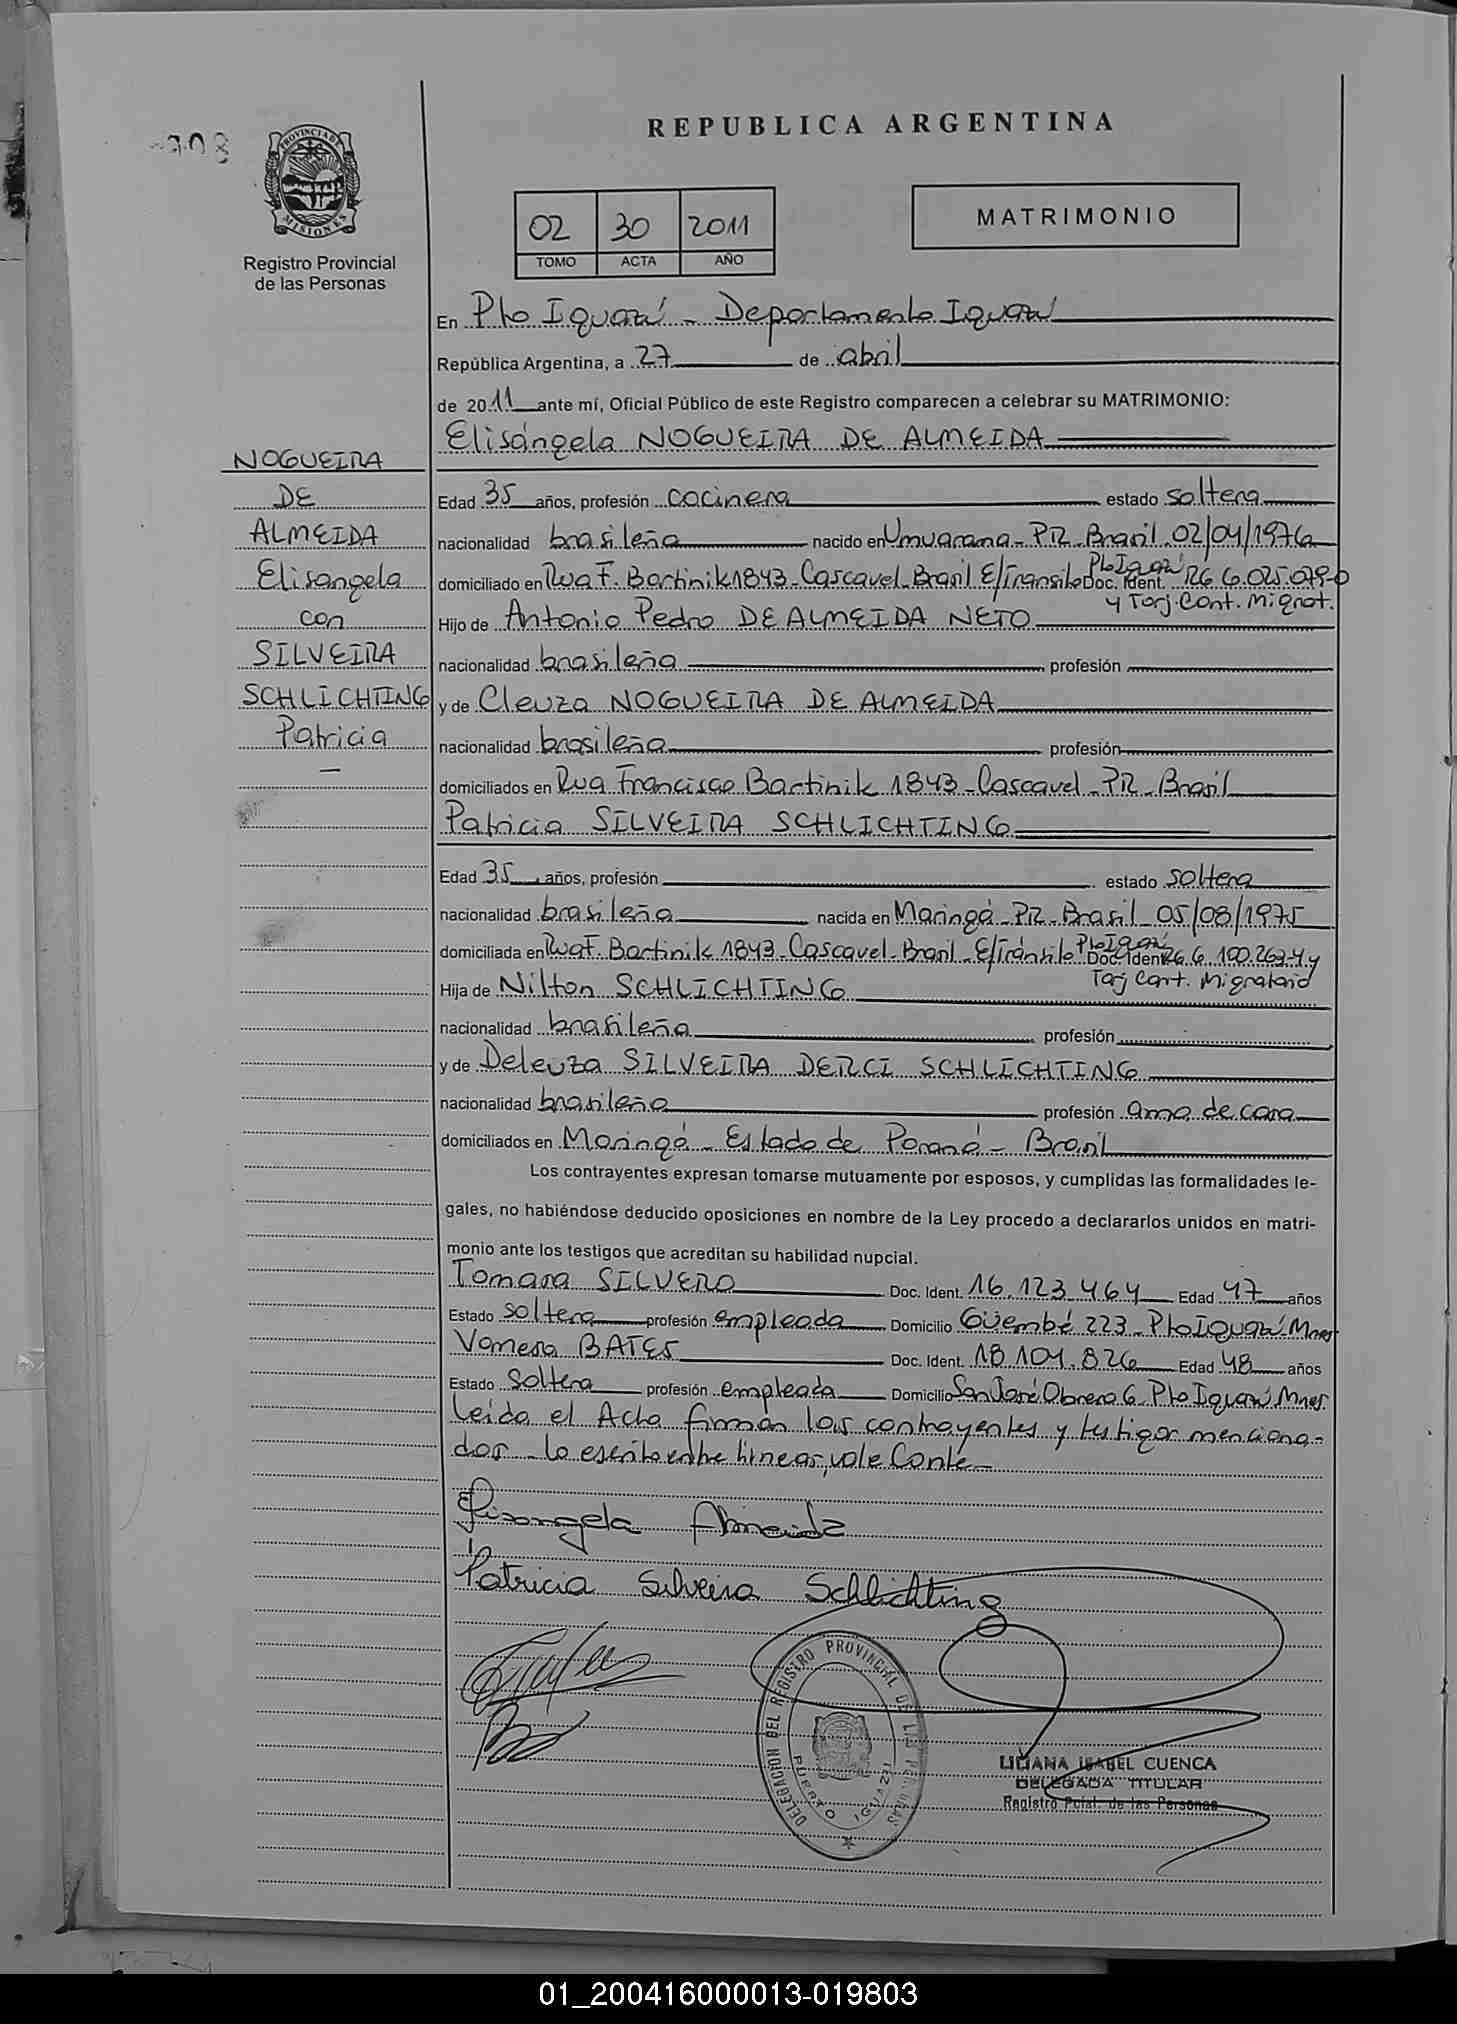 REPUBLICA ARGENTINA
PROVINCIA DE
MISIONES
Registro Provincial
de las Personas
02 30 2011
TOMO ACTA AÑO
MATRIMONIO
En Pto Iguazú - Departamento Iguazú
República Argentina, a 27 de abril
de 2011 ante mí, Oficial Público de este Registro comparecen a celebrar su MATRIMONIO:
Elisángela NOGUEIRA DE ALMEIDA
NOGUEIRA
DE
ALMEIDA
Elisangela
con
SILVEIRA
SCHLICHTING
Patricia
Edad 35 años, profesión cocinera estado soltera
nacionalidad brasileña nacido en Umuarama - PR - Brasil 02/04/1976
domiciliado en Rua F. Bartinik 1843 - Cascavel - Brasil E/Transito Pto Iguazú Doc. Ident. RG 6.025.079-0
y Tarj. Cont. Migrat.
Hijo de Antonio Pedro DE ALMEIDA NETO
nacionalidad brasileña profesión
y de Cleuza NOGUEIRA DE ALMEIDA
nacionalidad brasileña profesión
domiciliados en Rua Francisco Bartinik 1843 - Cascavel - PR - Brasil
Patricia SILVEIRA SCHLICHTING
Edad 35 años, profesión estado soltera
nacionalidad brasileña nacida en Maringá - PR - Brasil 05/08/1975
domiciliada en Rua F. Bartinik 1843 - Cascavel - Brasil - E/Tránsito Pto Iguazú Doc. Ident. RG 6.100.269-4 y
Tarj Cont. Migratoria
Hija de Nilton SCHLICHTING
nacionalidad brasileña profesión
y de Deleuza SILVEIRA DERCI SCHLICHTING
nacionalidad brasileña profesión ama de casa
domiciliados en Maringá - Estado de Paraná - Brasil
Los contrayentes expresan tomarse mutuamente por esposos, y cumplidas las formalidades le-
gales, no habiéndose deducido oposiciones en nombre de la Ley procedo a declararlos unidos en matri-
monio ante los testigos que acreditan su habilidad nupcial.
Tamara SILVERO Doc. Ident. 16.123.464 Edad 47 años
Estado soltera profesión empleada Domicilio Güembé 223 - Pto Iguazú - Mnes
Vanesa BATES Doc. Ident. 18.101.826 Edad 48 años
Estado soltera profesión empleada Domicilio San José Obrero 6 - Pto Iguazú Mnes.
Leída el Acta firman las contrayentes y testigos menciona-
dos - lo escrito entre líneas, vale Conste -
Elisangela Almeida
Patricia Silveira Schlichting
DELEGACION DEL REGISTRO PROVINCIAL DE LAS PERSONAS
PUERTO IGUAZU
LILIANA ISABEL CUENCA
DELEGADA TITULAR
Registro Pcial. de las Personas
01_200416000013-019803